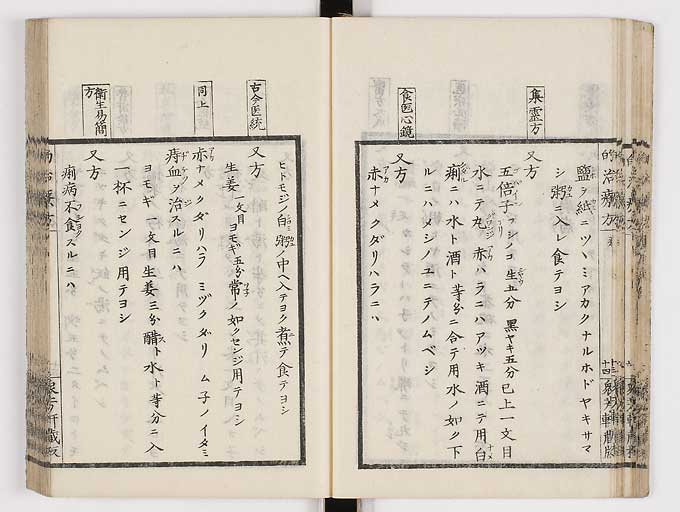 塩ヲ紙ニツヽミアカクナルホドヤキサマ
シ粥ニ入レ食テヨシ
集霊方
又方
五倍子フシノコ生五分 黒ヤキ五分已上一文目
水ニテ丸 赤ハラニハアツキ酒ニテ用白
痢ニハ水ト酒ト等分ニ合テ用水ノ如ク下
ルニハメシノユニテノムベシ
食医心鏡
又方
赤ナメクダリハラニハ
ヒトモジノ白粥ノ中ヘ入テヨク煮テ食テヨシ
古今医統
又方
生姜一文目 ヨモギ五分常ノ如クセンジ用テヨシ
同上
赤ナメクダリハラ ミヅクダリ ム子ノイタミ
痔血ヲ治スルニハ
ヨモギ一文目生姜三分醋ト水ト等分ニ入
一杯ニセンジ用テヨシ
衛生易簡方
又方
痢病不食スルニハ